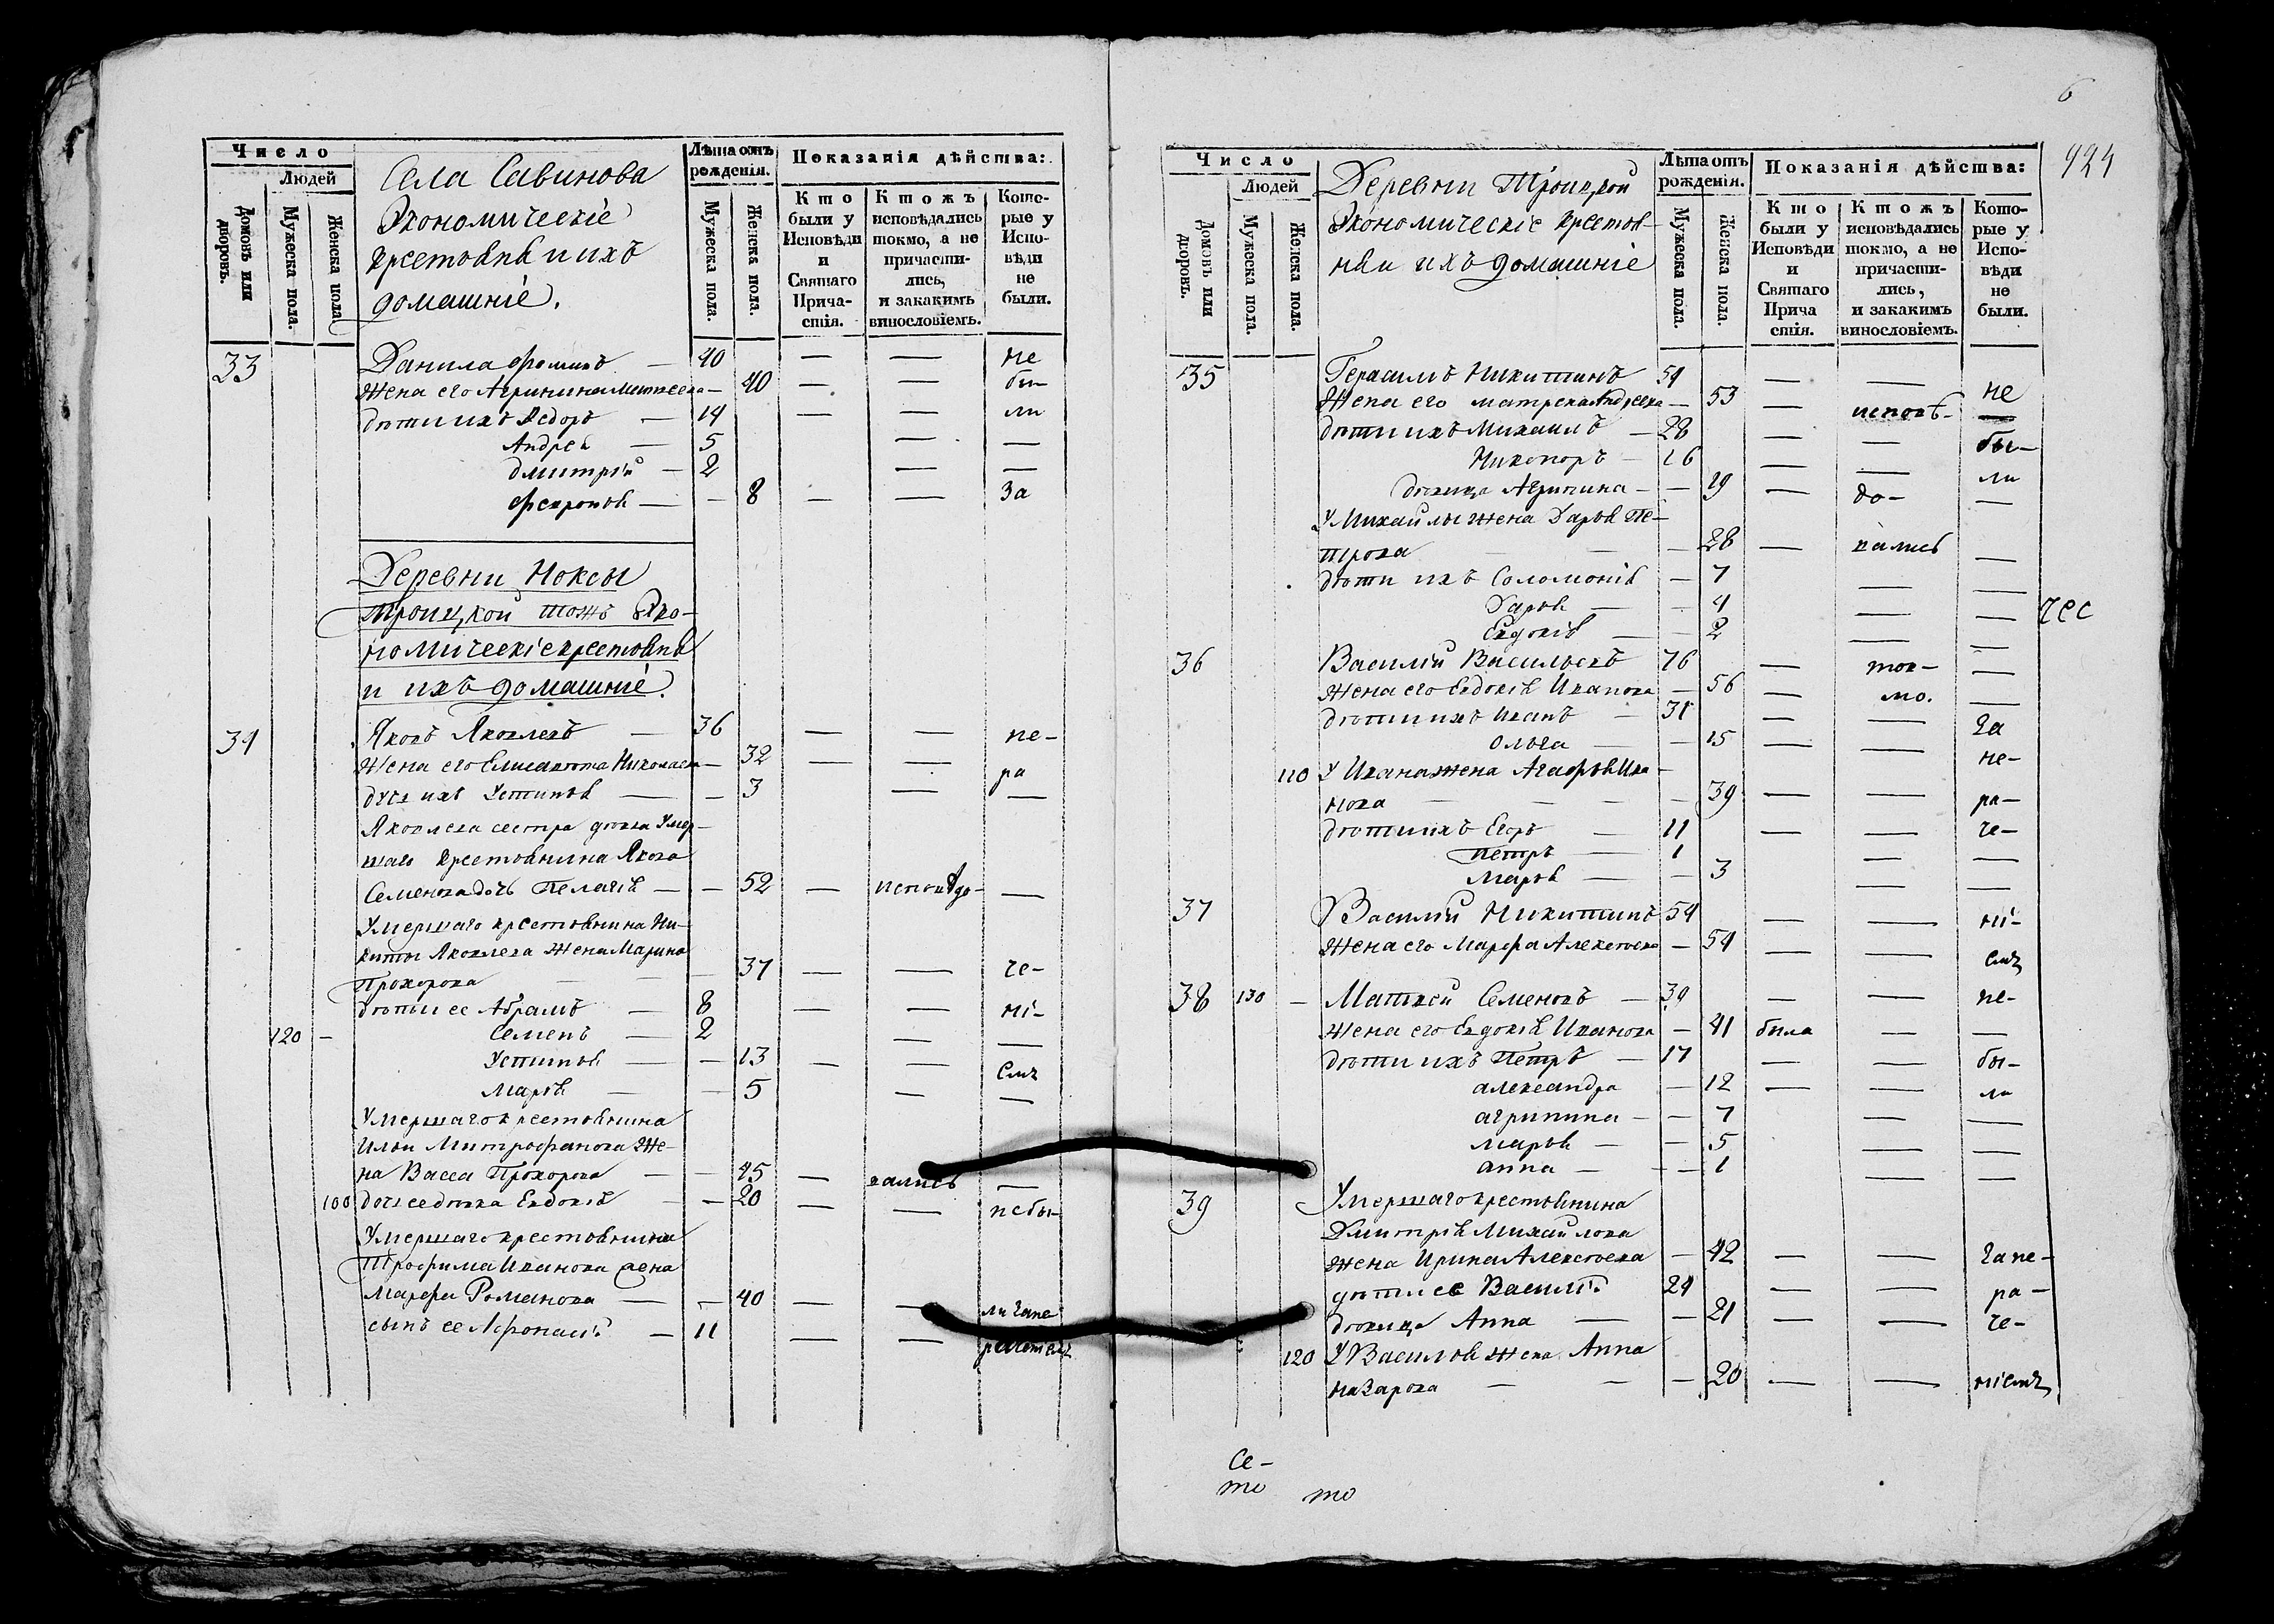 Число
Людей
Домовъ или дворовъ.
Мужеска пола.
Женска пола.
Села Савинова
Экономическіе
крестьянѣ и ихъ
домашніе.
Лѣта отъ рожденія.
Мужеска пола.
Женска пола.
Показанія дѣйства:
Кто были у Исповѣди и Святаго Причастія.
Ктожъ исповѣдались токмо, а не причастились, и закакимъ винословіемъ.
Которые у Исповѣди не были.
33 Данила Фоминъ — 40 — — не
Жена его Агрипина Матвеева — 40 — — бы-
дѣти ихъ Федоръ — 14 — — ли
Андрей — 5 — —
Дмитрій — 2 — —
Феврониѣ — — 8 — — За
Деревни Ноксы
Троицкой тожъ Эко-
номическіе крестьянѣ
и ихъ домашніе.
34 Яковъ Яковлевъ — 36 — — не-
Жена его Елисавета Николаева — 32 — — ра
дочь ихъ Устиньѣ — — 3 — —
Яковлева сестра девка Умер-
шаго крестьянина Якова
Семенова дочь Пелагіѣ — — 52 — исповѣдо- —
Умершаго крестьянина Ни-
киты Яковлева Жена Марина
Прохорова — — 37 — — че-
дѣти ее Абрамъ — 8 — — ні-
120 — Семенъ — 2 — —
Устиньѣ — — 13 — — емъ
Марьѣ — — 5 — —
Умершаго крестьянина
Ильи Митрофанова Же-
на Васса Прохорова — — 45 — вались —
100 дочь ее девка Евдокіѣ — — 20 — — небы-
Умершаго крестьянина
Трофима Иванова жена
Марфа Романова — — 40 — — ли Зане
сынъ ее Афонасій — 11 — —
6
924
Число
Людей
Домовъ или дворовъ.
Мужеска пола.
Женска пола.
Деревни Троицкой
Экономическіе крестья-
нѣ и ихъ домашніе
Лѣта отъ рожденія.
Мужеска пола.
Женска пола.
Показанія дѣйства:
Кто были у Исповѣди и Святаго Прича стія.
Ктожъ исповѣдались токмо, а не причастились, и закакимъ винословіемъ.
Которые у Исповѣди не были.
35 Герасимъ Никитинъ 54 — — не
Жена его Матрена Андреева — 53 — исповѣ- —
дѣти ихъ Михаилъ — 28 — — бы-
Никоноръ — 16 — — ли
девица Агрипина — — 19 — до- —
У Михайлы жена Дарьѣ Пе-
трова — — — 28 — вались —
дѣти ихъ Соломоніѣ — 7 — —
Дарьѣ — — 4 — —
Евдокіѣ — — 2 — —
36 Василій Васильевъ 76 — ток- —
Жена его Евдокіѣ Иванова — 56 — мо. —
дѣти ихъ Иванъ — 31 — — За
Ольга — — 15 — — не-
110 У Ивана жена Агафьѣ Ива-
нова — — — 39 — — ра-
дѣти ихъ Егоръ — 11 — — че-
Петръ — 1 — —
Марьѣ — — 3 — —
37 Василій Никитинъ 54 — — ні-
Жена его Марфа Алексеева — 54 — — емъ
38 130 — Матвей Семеновъ — 39 — — не-
Жена его Евдокіѣ Иванова — 41 была — —
дѣти ихъ Петръ — 17 — — бы-
Александра — 12 — — ла
Агрипина — — 7 — —
Марьѣ — — 5 — —
Анна — — 1 — —
39 Умершаго крестьянина
Дмитріѣ Михайлова
жена Ирина Алексеева — 42 — — Зане-
дѣти ее Василій 24 — — ра-
девица Анна — — 21 — — че-
120 У Василіѣ жена Анна
Назарова — — — 20 — — ніемъ
Се-
то
то